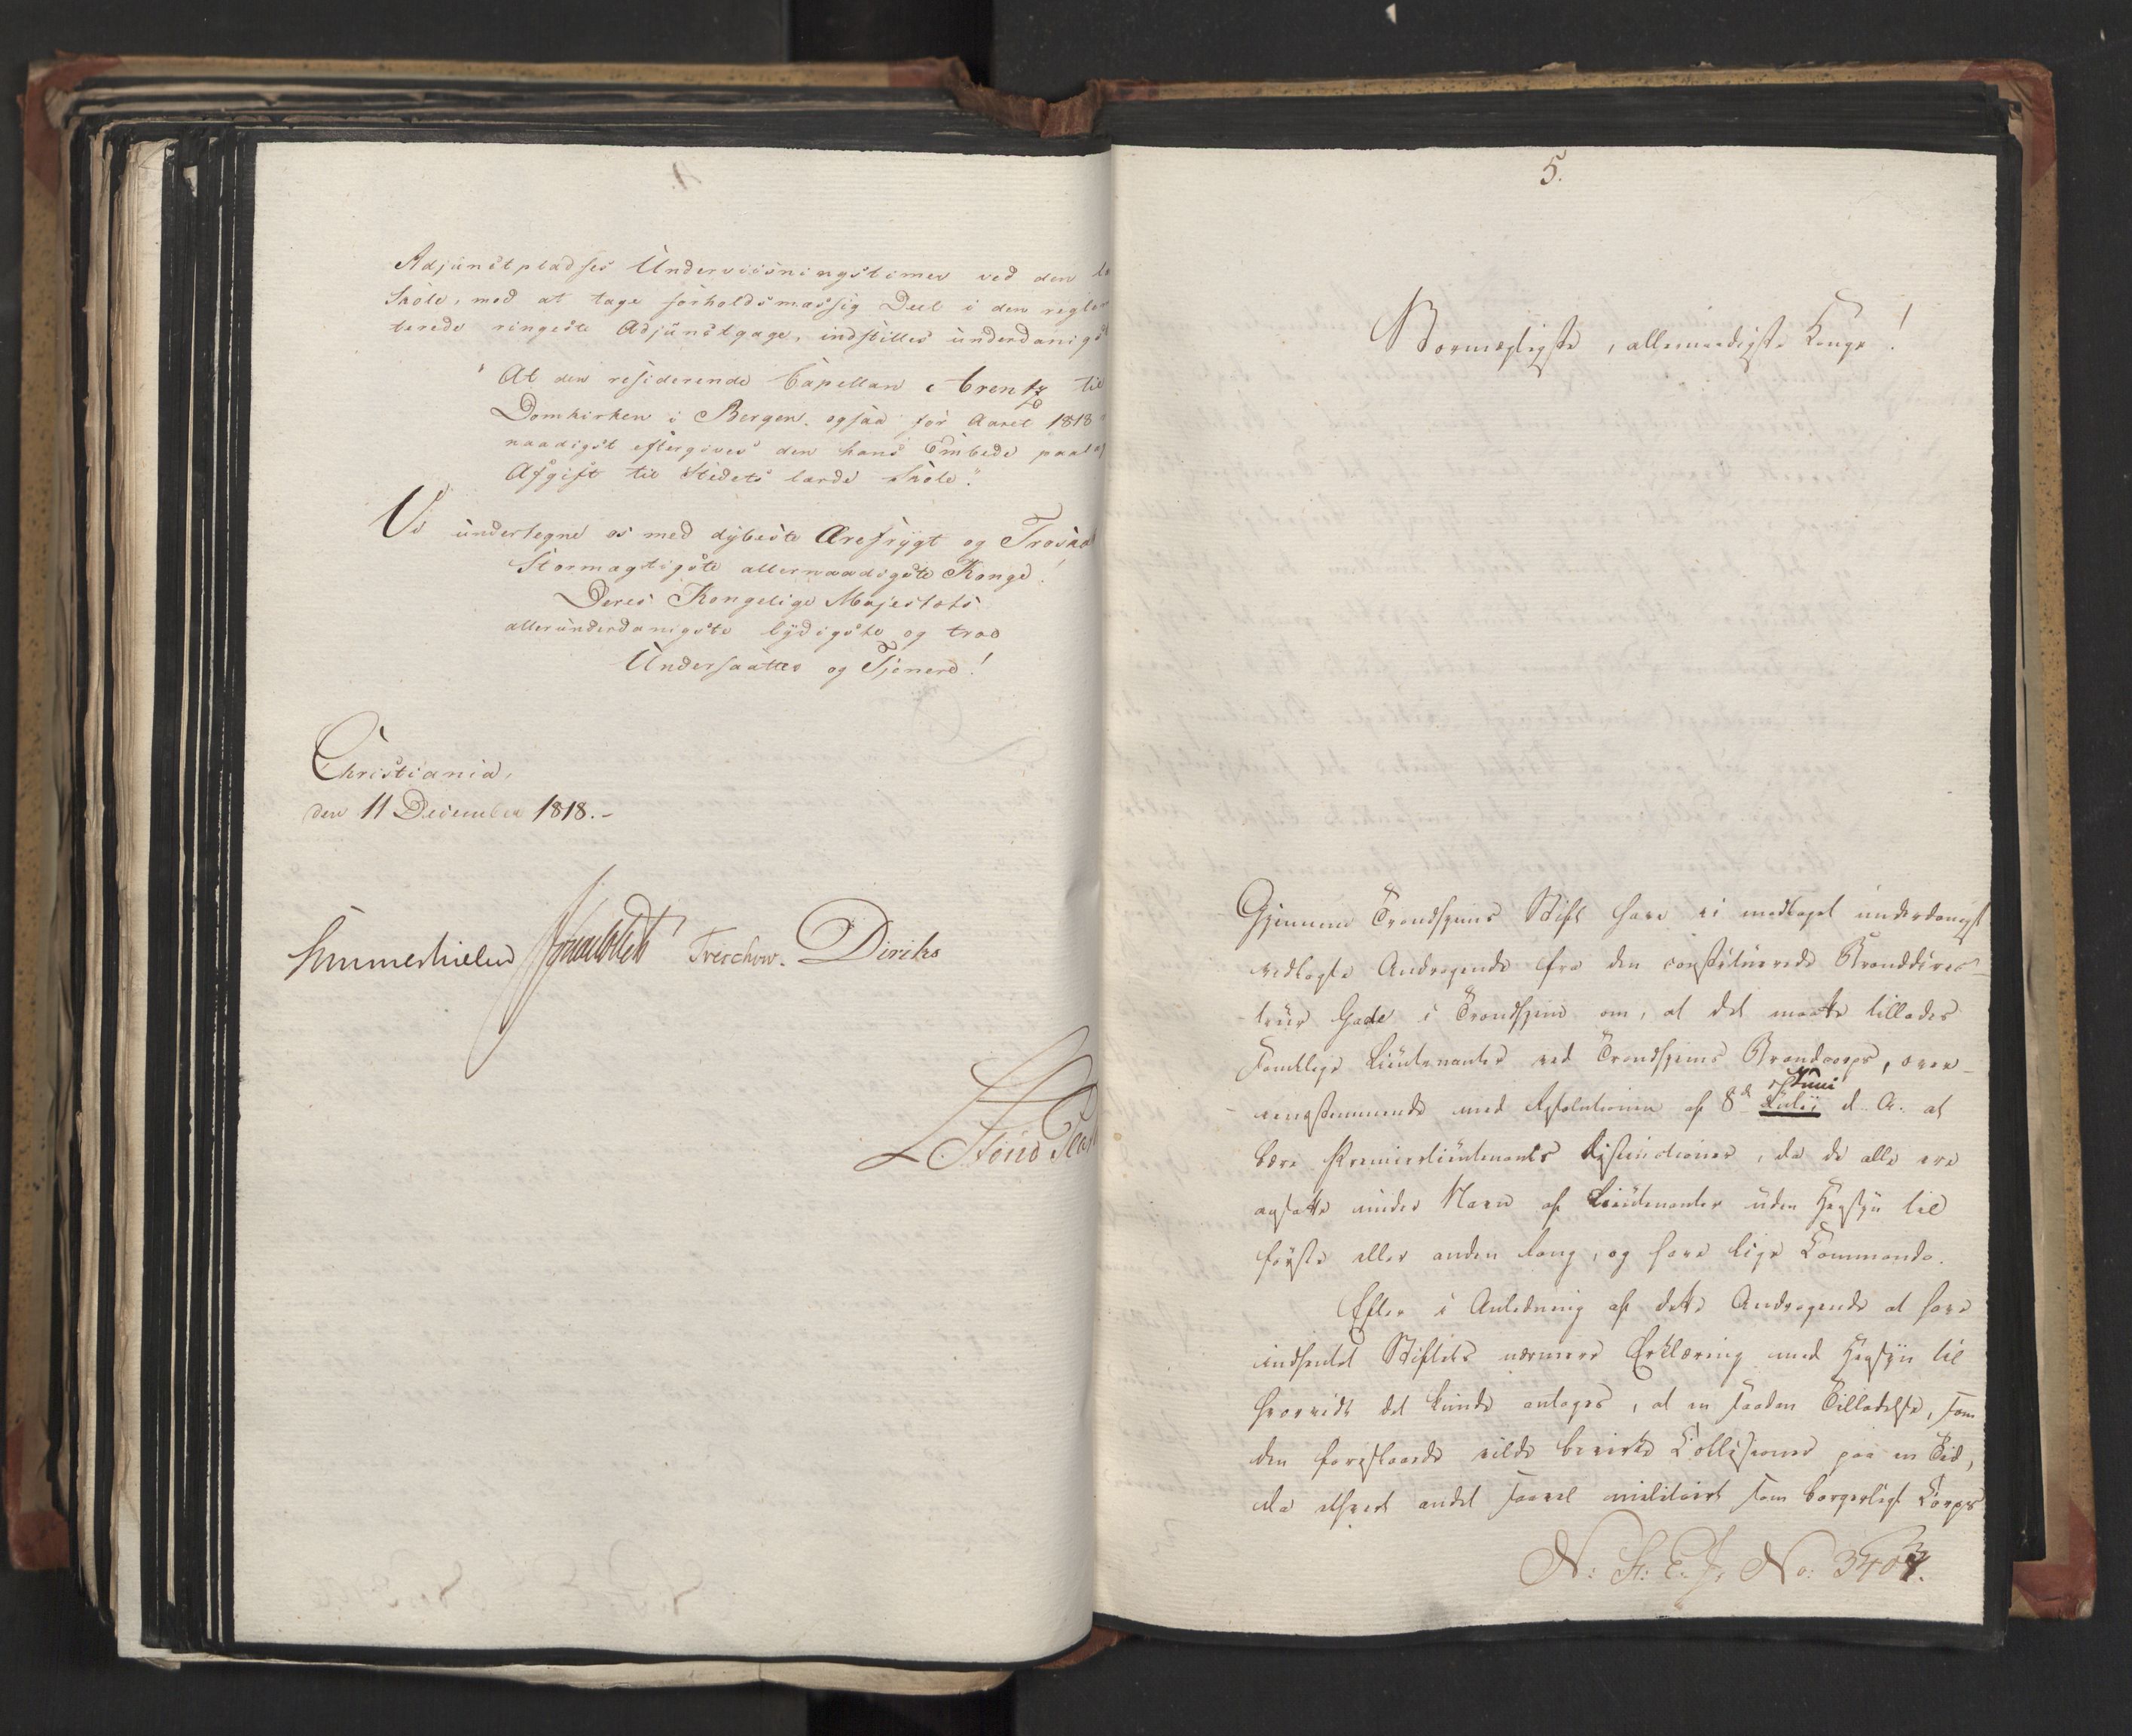 Adjunctpladses Underviisningstimer ved den
Skole, mod at tage forholdsmæssig Deel i den regle-
terede ringeste Adjunctgage, indstilles underdanigst
"At den residerende Capellan Arentz til
Domkirken i Bergen, ogsaa for Aaret 1818
naadigst eftergives den hans Embede
Afgift til Stedets lærde Skole."
Vi undertegne os med dybeste Ærefrygt og Troskab
Stormægtigste allernaadigste Konge!
Deres Kongelige Majestæts
allerunderdanigste lydigste og troe
Undersaatter og Tjenere!
Christiania,
den 11 December 1818.-
Sommerhielm Treschow. Diriks
5.
Stormægtigste, allernaadigste Konge!
Gjennem Trondhjems Stift have vi modtaget underdanigst
vedlagte Andragende fra den constituerede Branddirec-
teur Gade i Trondhjem om, at det maatte tillades
samtlige Lieutenanter ved Trondhjems Brandcorps, over-
Juni
eensstemmende med Resolutionen af 8de Julii d. A. at
bære Premierlieutenants Distinctioner, da de alle ere
ansatte under Navn af Lieutenanter uden Hensyn til
første eller anden Rang, og have lige Commando.
Efter i Anledning af dette Andragende at have
indhentet Stiftets nærmere Erklæring med Hensyn til
hvorvidt det kunde antages, at en saadan Tilladelse, som
den foreslaaede vilde bevirke Collisioner paa en Tid,
da ethvert andet saavel militairt som borgerligt Corps
N: St: E. J. No: 3403.